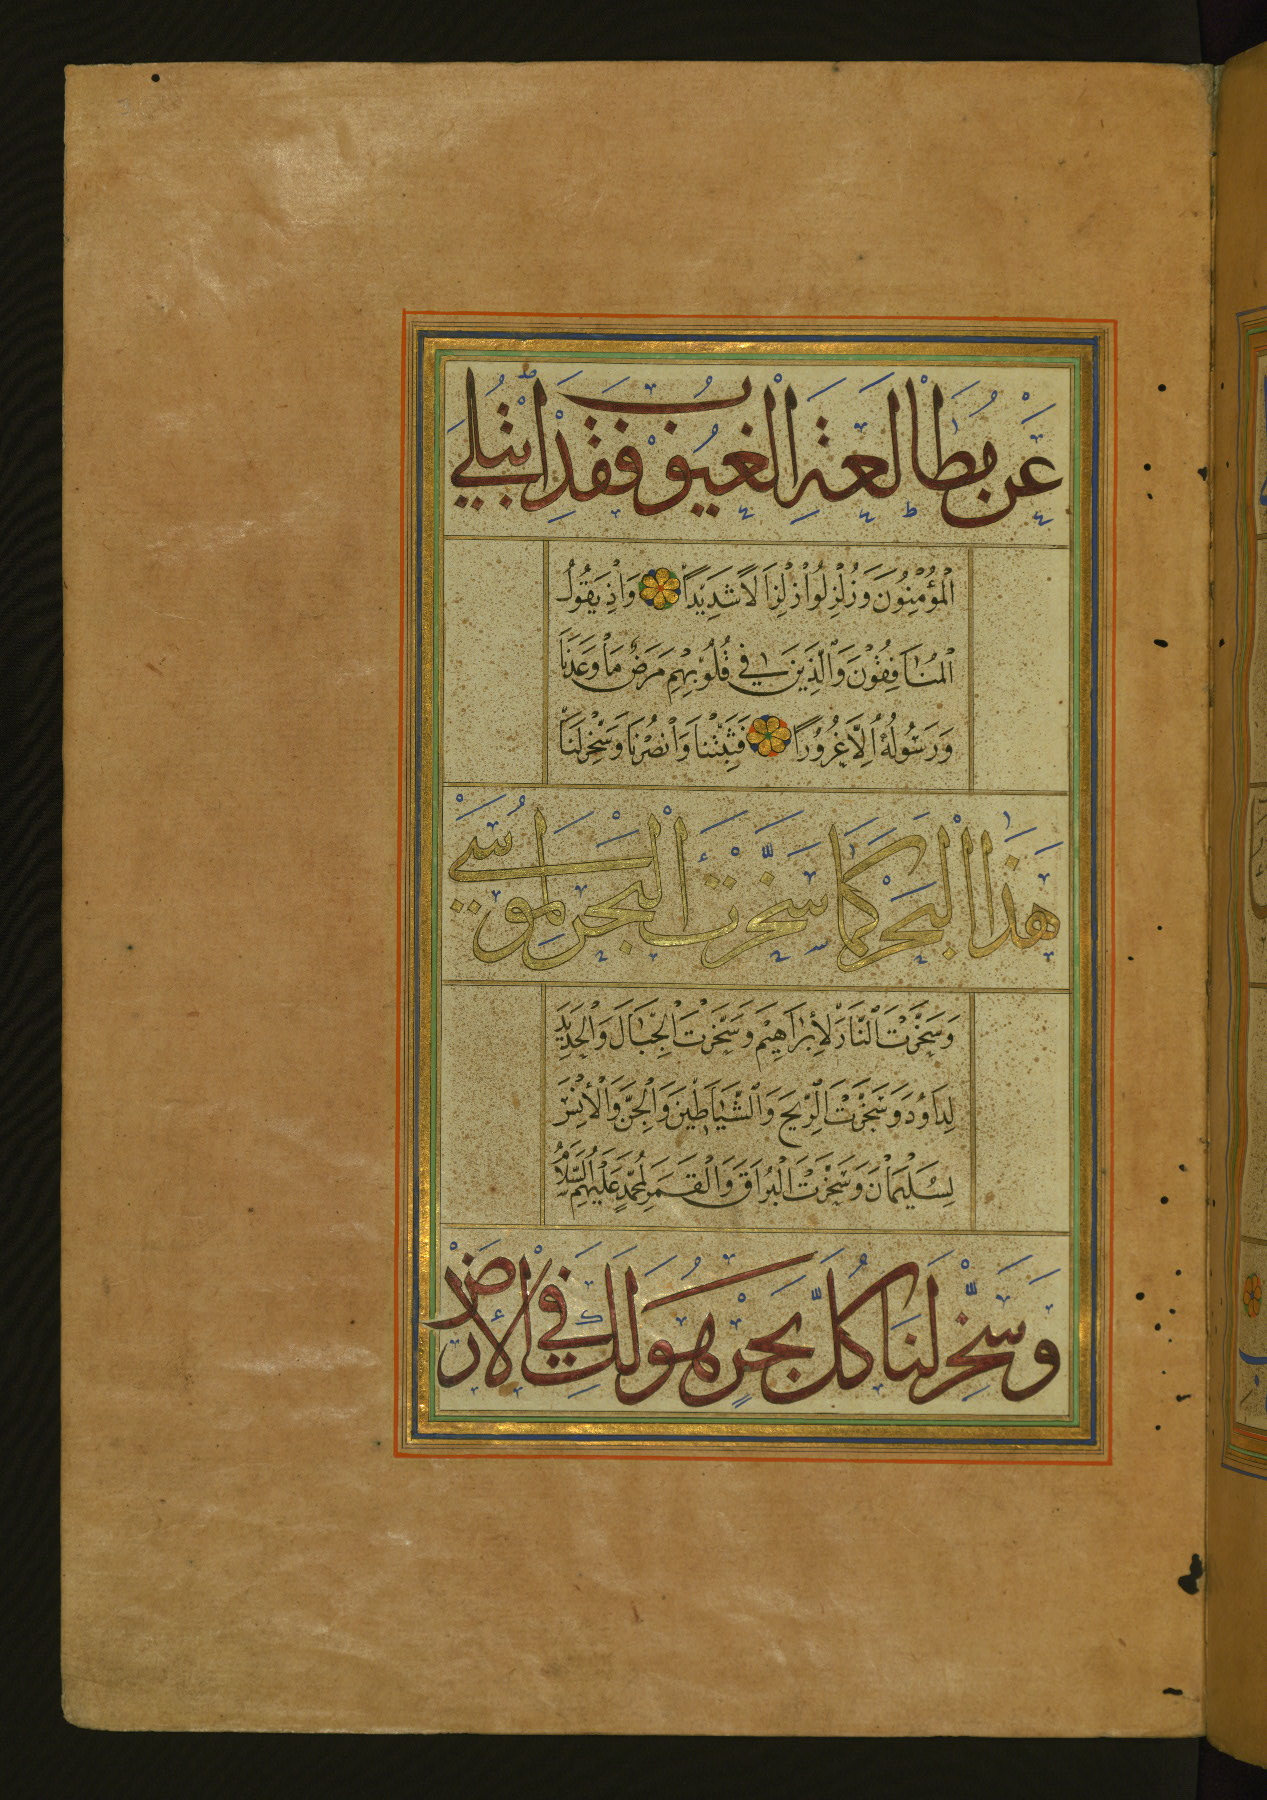 عَنْ مُطَالَعَةِ الْغُيُوْبِ فَقَدِ ابْتُلِيَ
الْمُؤْمِنُوْنَ وَزُلْزِلُوْا زِلْزَالًا شَدِيْدًا وَاِذْ يَقُوْلُ
الْمُنَافِقُوْنَ وَالَّذِيْنَ فِي قُلُوْبِهِمْ مَرَضٌ مَا وَعَدَنَا
وَرَسُوْلُهُ اِلَّا غُرُوْرًا فَثَبِّتْنَا وَانْصُرْنَا وَسَخِّرْ لَنَا
هَذَا الْبَحْرَ كَمَا سَخَّرْتَ الْبَحْرَ لِمُوْسَى
وَسَخَّرْتَ النَّارَ لِأِبْرَاهِيْمَ وَسَخَّرْتَ الْجِبَالَ وَالْحَدِيْدَ
لِدَاوُدَ وَسَخَّرْتَ الرِّيْحَ وَالشَّيَاطِيْنَ وَالْجِنَّ وَالْأِنْسَ
لِسُلَيْمَانَ وَسَخَّرْتَ الْبُرَاقَ وَالْقَمَرَ لِمُحَمَّدٍ عَلَيْهِمُ السَّلَامُ
وَسَخِّرْ لَنَا كُلَّ بَحْرٍ هُوَ لَكَ فِي الْأَرْضِ